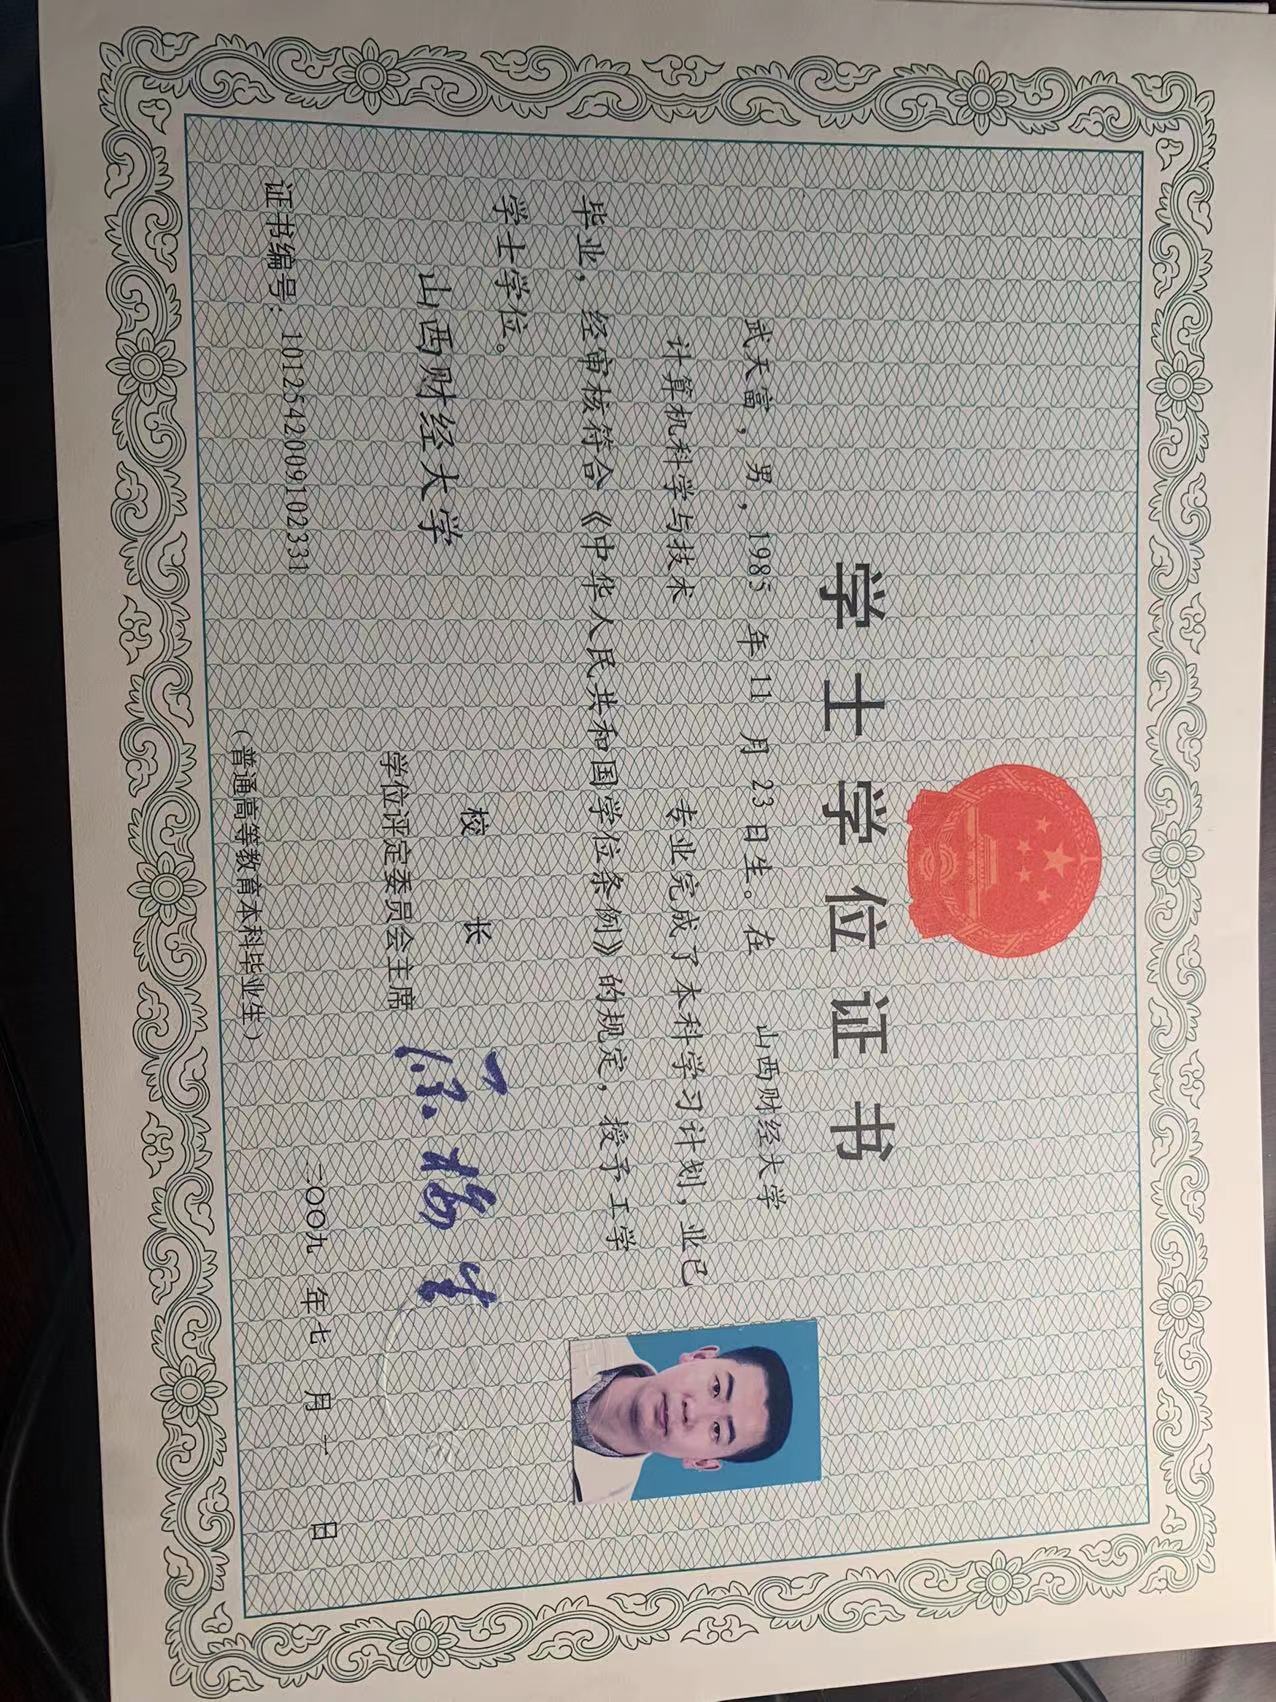 学士学位证书
武天富，男，1985 年 11 月 23 日生。在 山西财经大学
计算机科学与技术 专业完成了本科学习计划，业已
毕业，经审核符合《中华人民共和国学位条例》的规定，授予工学
学士学位。
山西财经大学
校 长
学位评定委员会主席
证书编号：1012542009102331
二〇〇九 年 七 月 一 日
（普通高等教育本科毕业生）